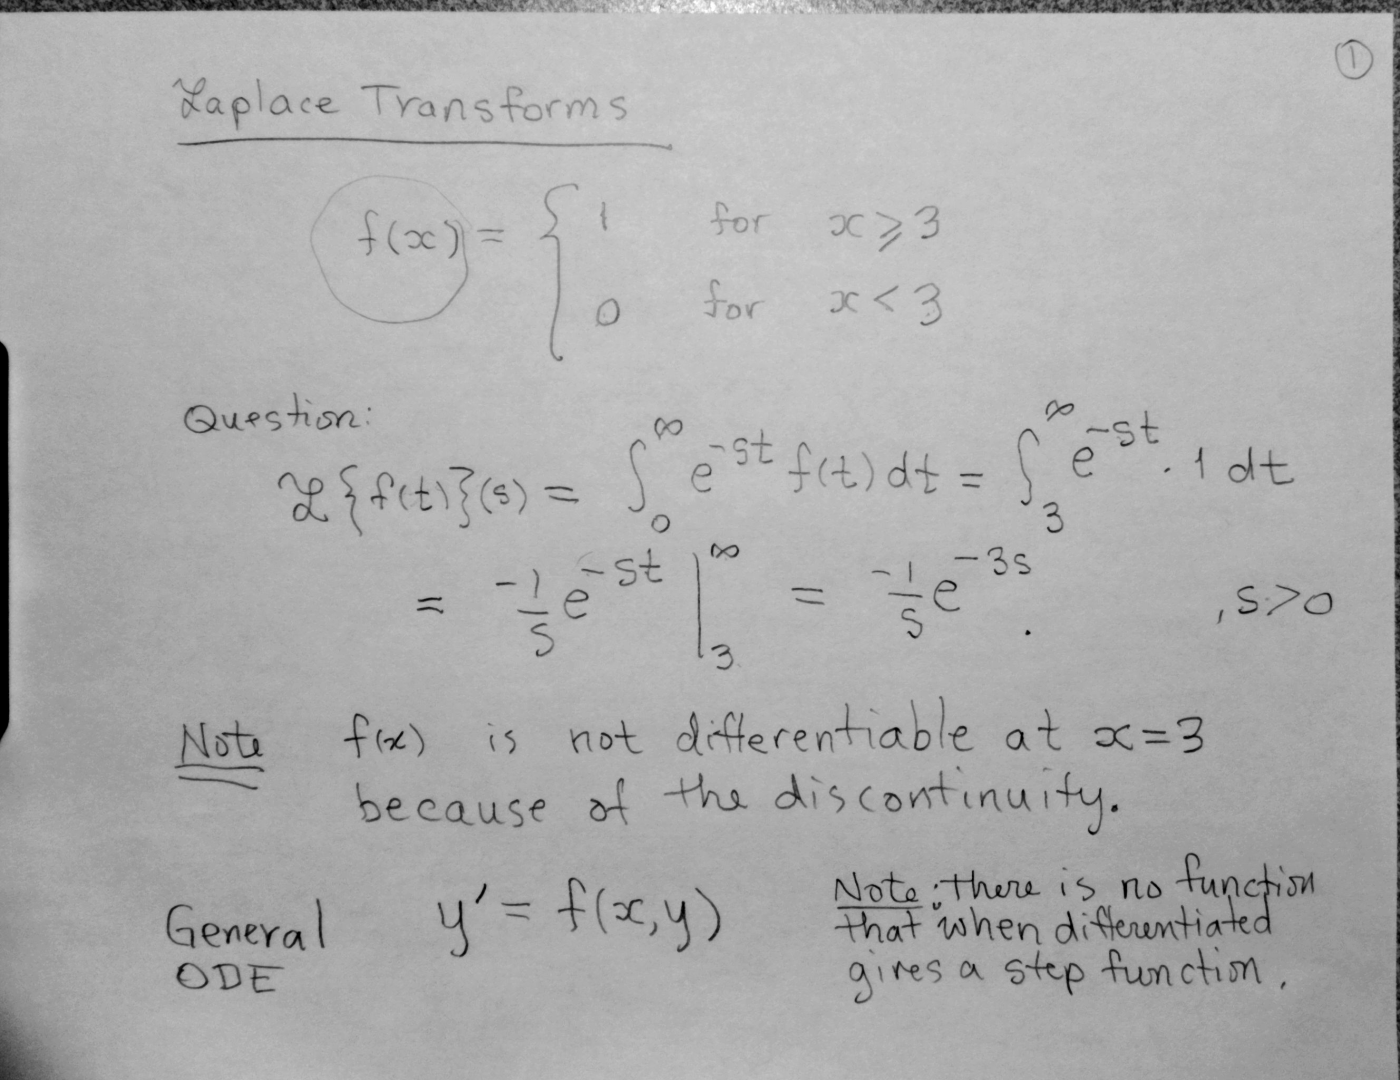 ①
Laplace Transforms
f(x) = { 1 for x ⩾ 3
0 for x < 3
Question:
ℒ{f(t)}(s) = ∫₀^∞ e^{-st} f(t) dt = ∫₃^∞ e^{-st} · 1 dt
= -1/s e^{-st} |₃^∞ = -1/s e^{-3s} . , s>0
Note f(x) is not differentiable at x=3
because of the discontinuity.
General ODE y' = f(x,y)
Note: there is no function
that when differentiated
gives a step function.